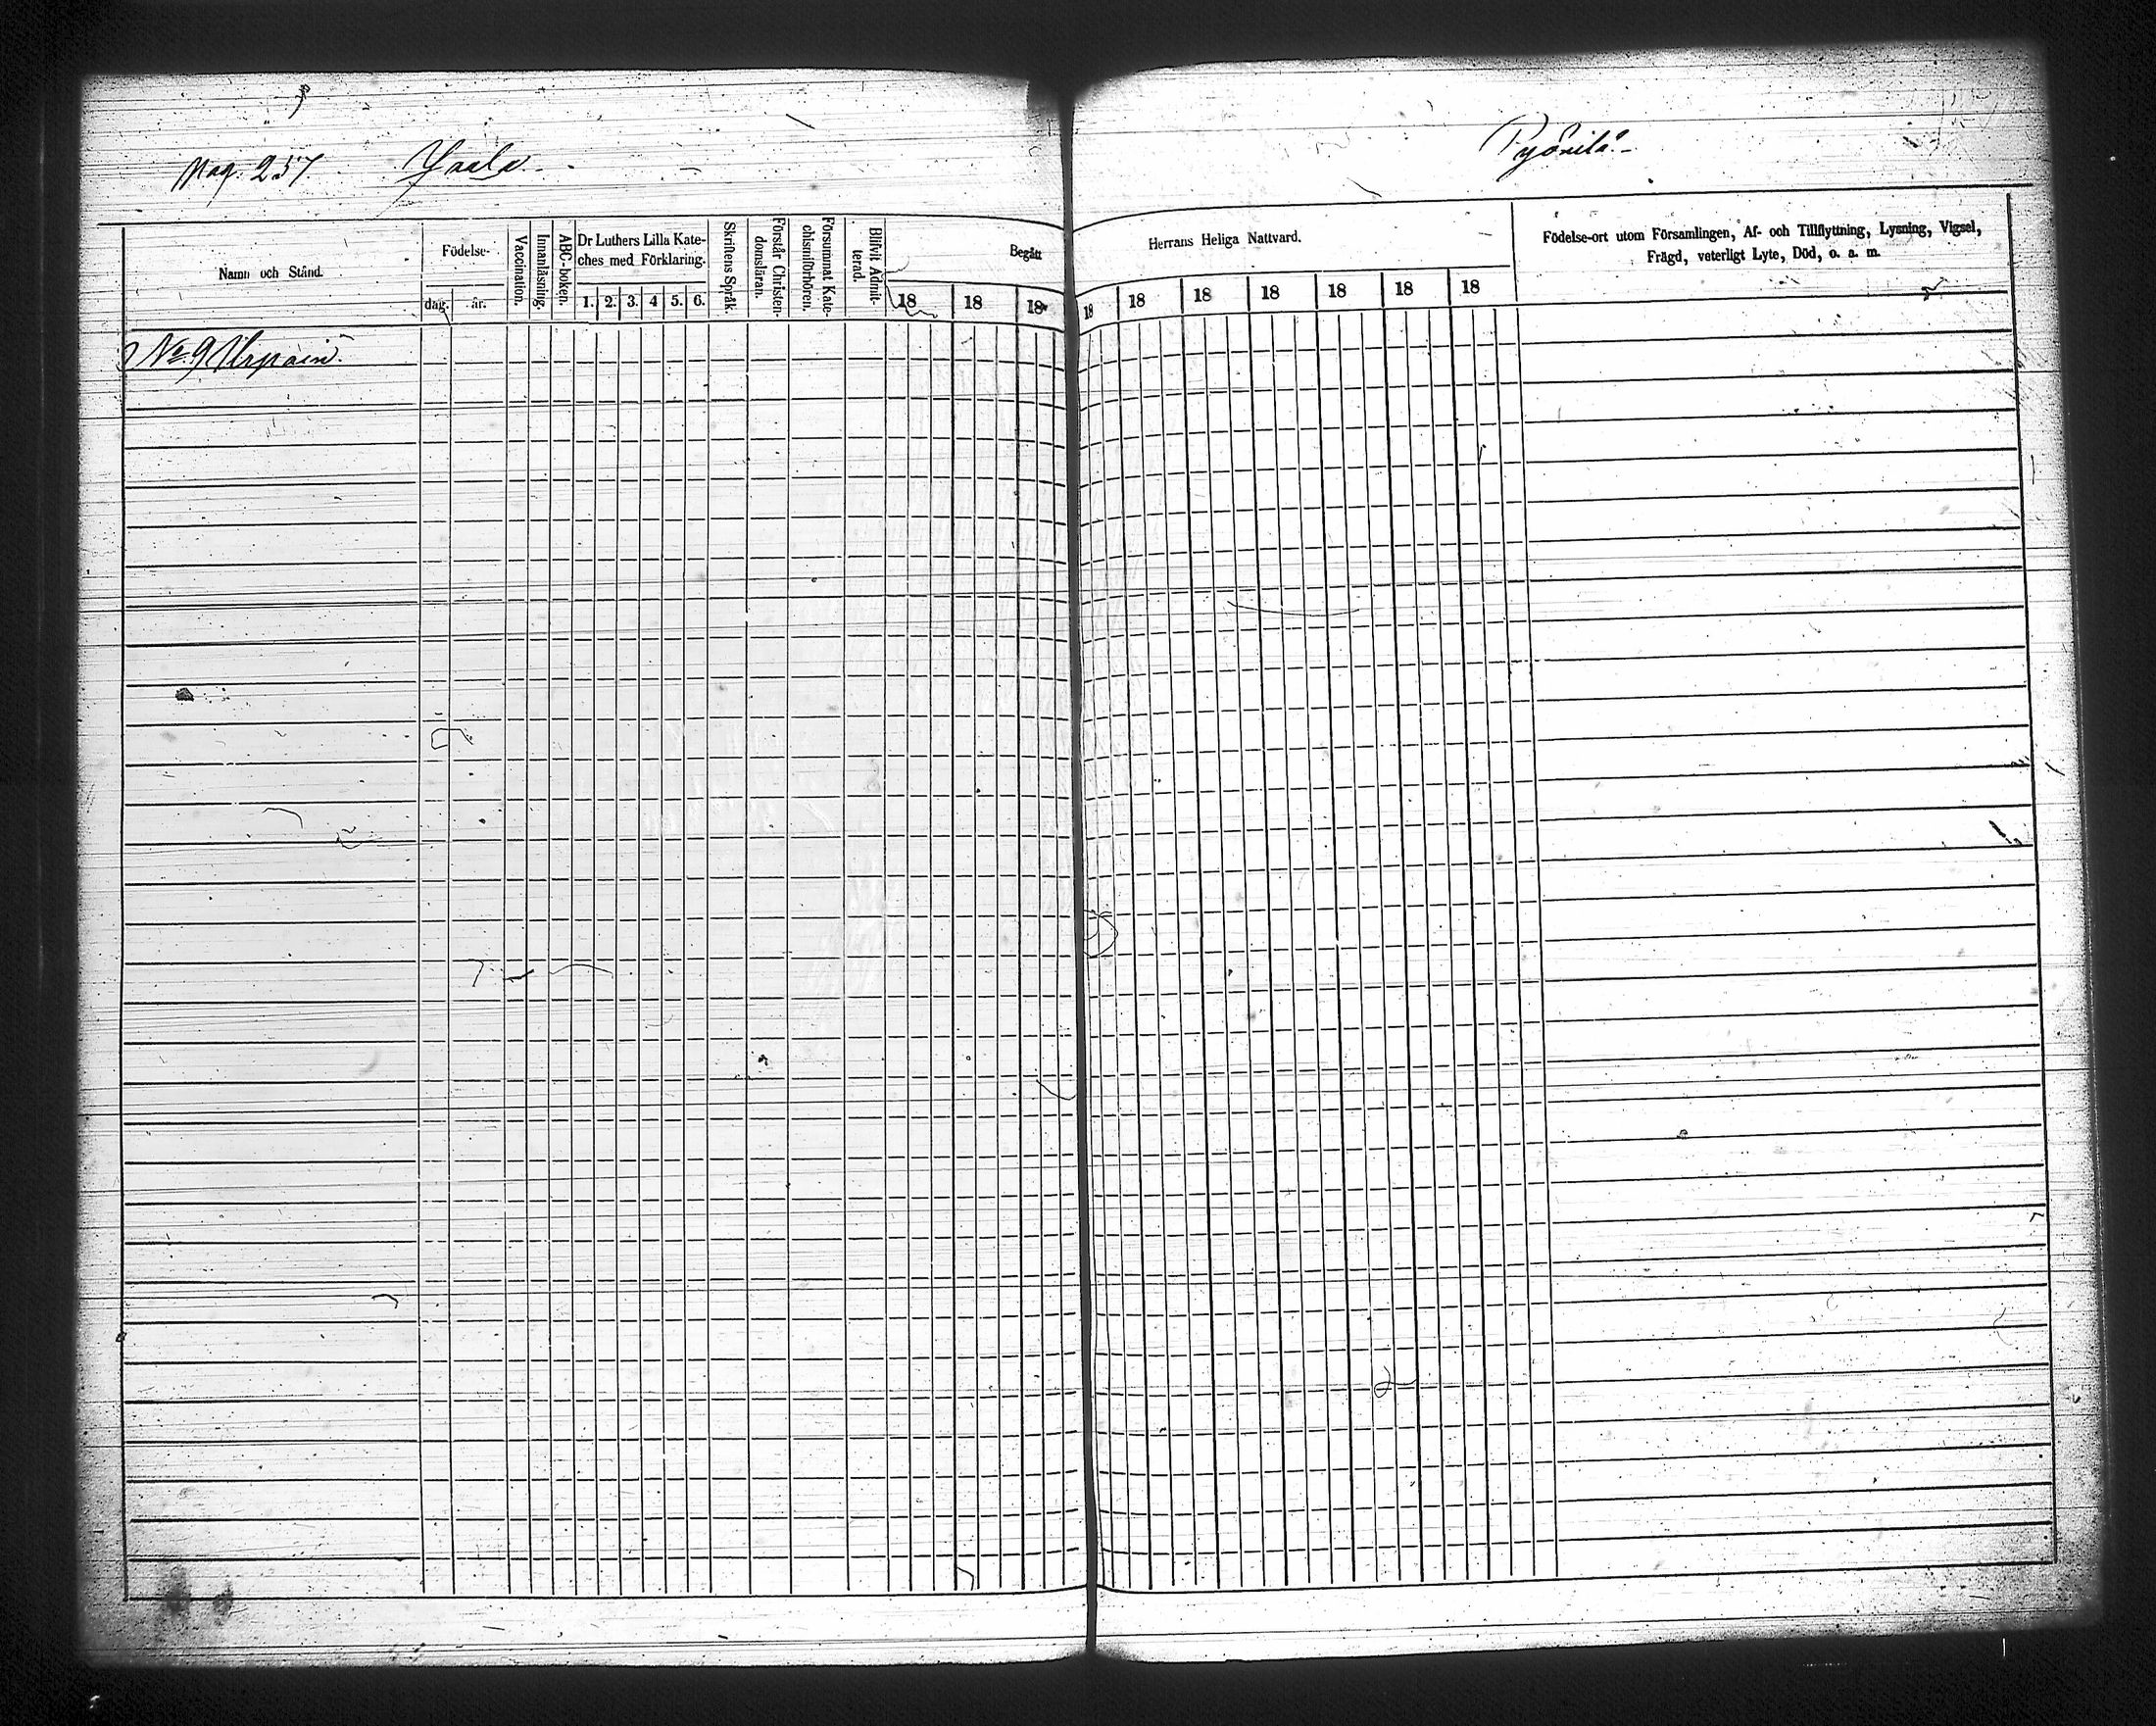 Pag. 257. Jaala. Pyörilä.
Namn och Stånd.
Födelse-
dag. år.
Vaccination.
Innanläsning.
ABC-boken.
Dr Luthers Lilla Kate-
ches med Förklaring.
1. 2. 3. 4 5. 6.
Skriftens Språk.
Förstår Christen-
domsläran.
Försummat Kate-
chismiförhören.
Blifvit Admit-
terad.
Begått Herrans Heliga Nattvard.
18 18 18 18 18 18 18 18 18 18
Födelse-ort utom Församlingen, Af- och Tillflyttning, Lysning, Vigsel,
Frägd, veterligt Lyte, Död, o. a. m.
No 9